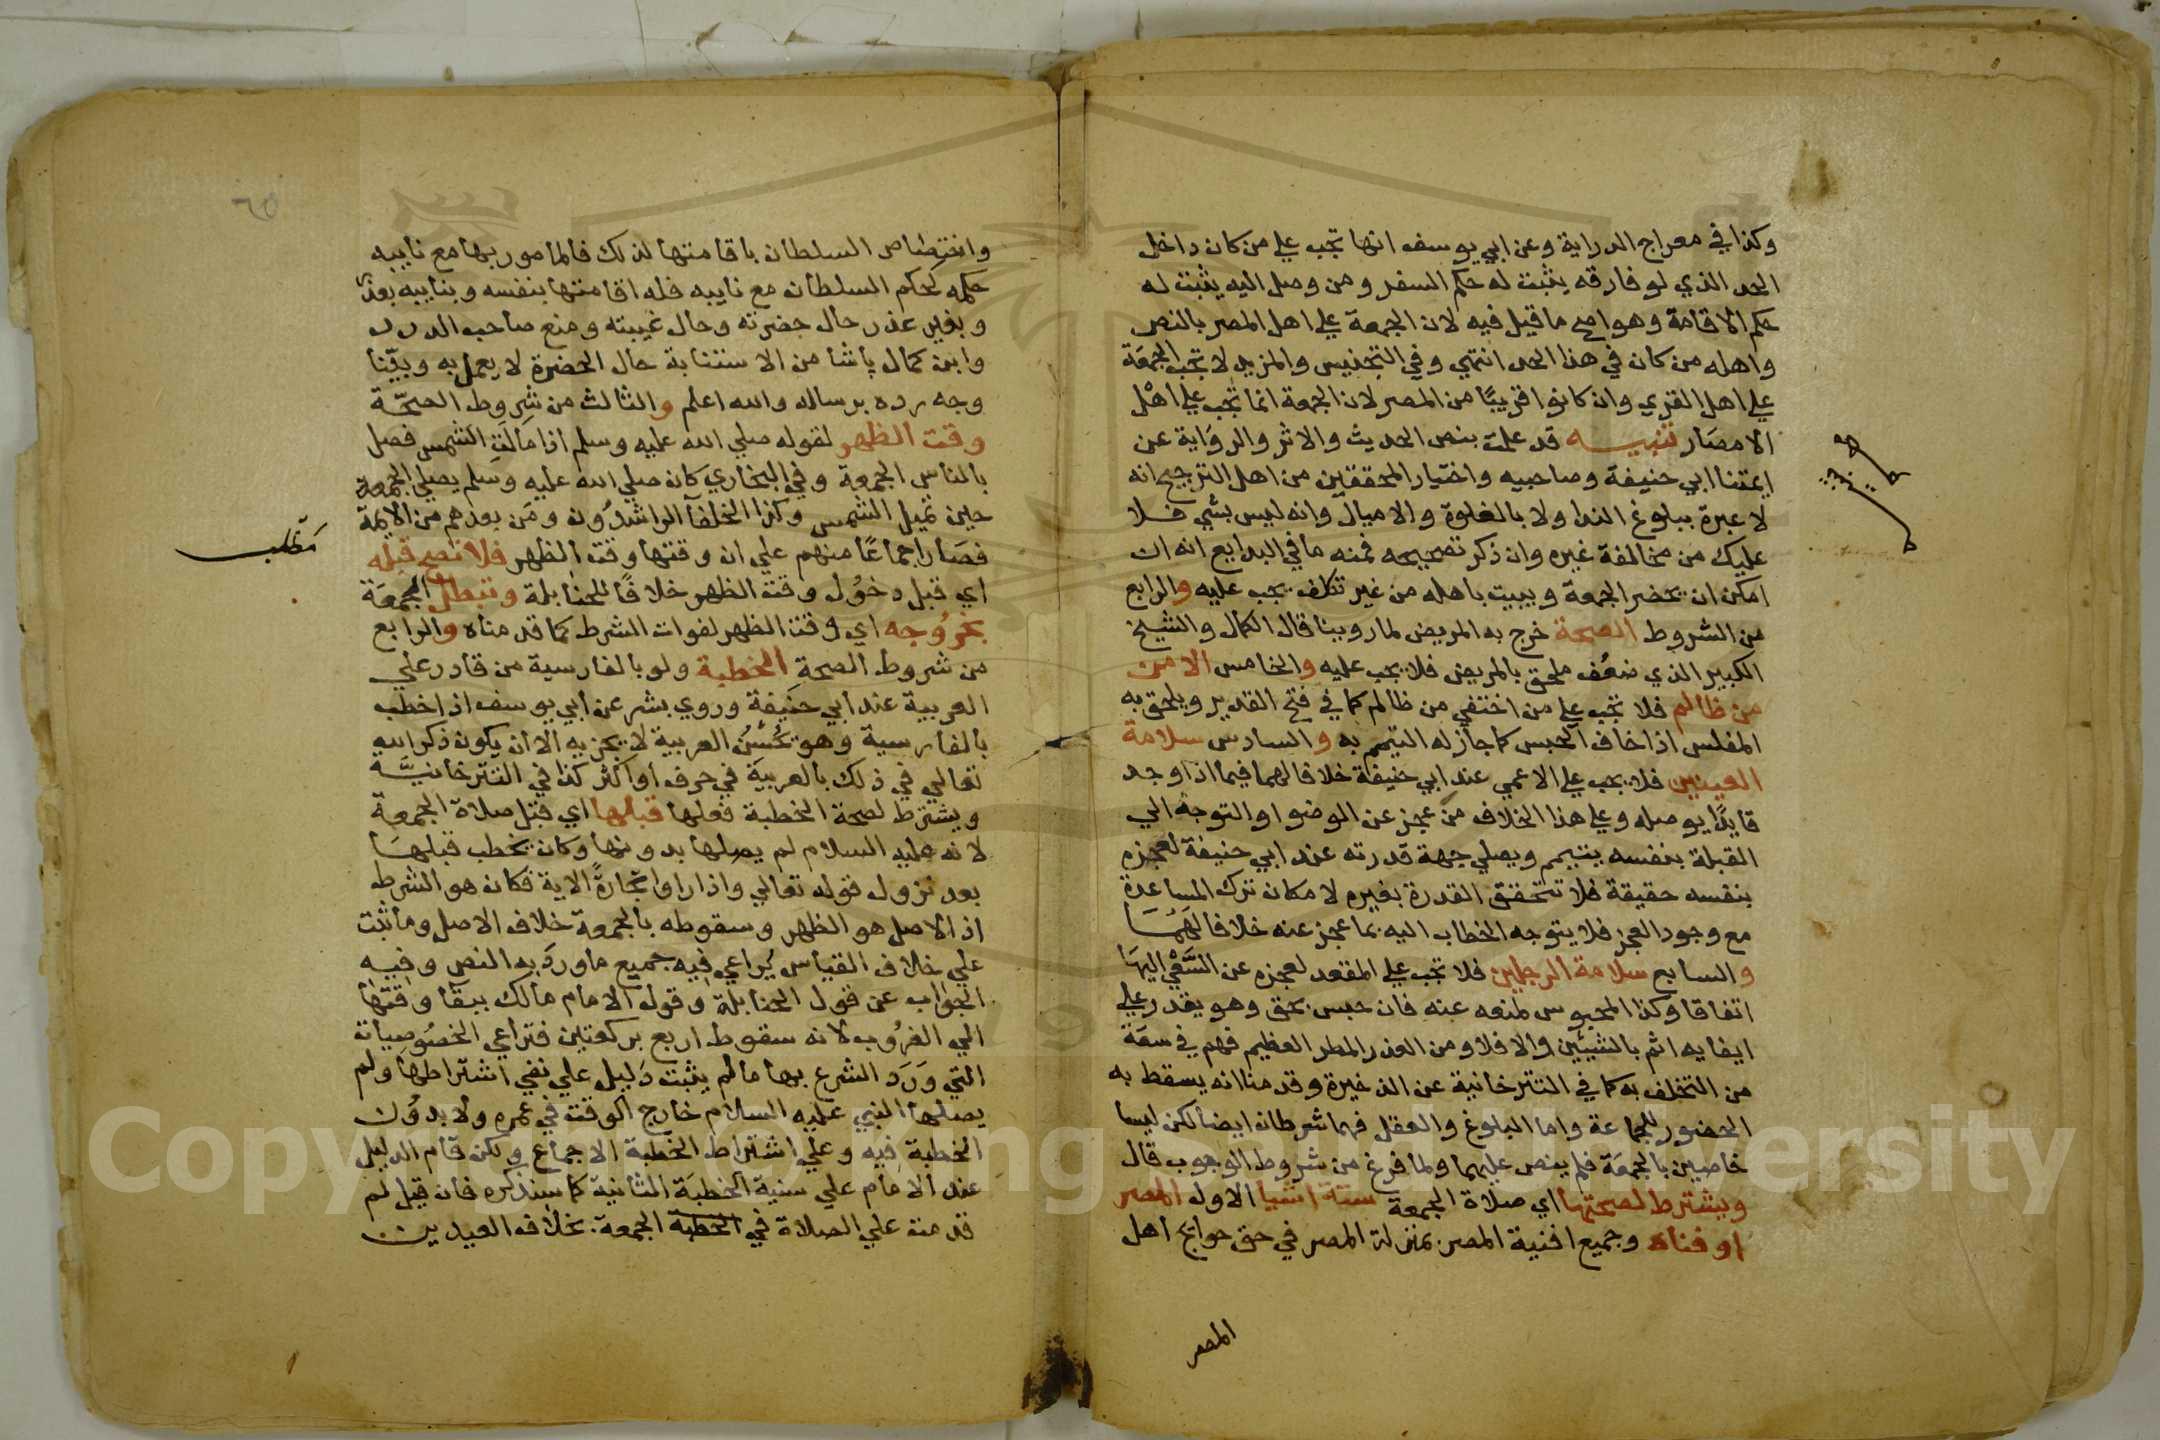 وكذا في معراج الدراية وعن ابي يوسف انها تجب علي من كان داخل
الحد الذي لو فارقه يثبت له حكم السفر ومن وصل اليه يثبت له
حكم الاقامة وهو اصح ما قيل فيه لان الجمعة علي اهل المصر بالنص
واهله من كان في هذا الحد انتهي وفي التجنيس والمزيد لا تجب الجمعة
علي اهل القري وان كانوا قريبًا من المصر لان الجمعة انما تجب علي اهل
الامصار تنبيه قد علمت بنص الحديث والاثر والرواية عن
ايمتنا ابي حنيفة وصاحبيه واختيار المحققين من اهل الترجيح انه
لا عبرة ببلوغ الندا ولا بالغلوة والاميال وانه ليس بشي فلا
عليك من مخالفة غيره وان ذكر تصحيحه فمنه ما في البدايع انه ان
امكن ان يحضر الجمعة ويبيت باهله من غير تكلف يجب عليه والرابع
من الشروط الصحة خرج به المريض لما روينا قال الكمال والشيخ
الكبير الذي ضعُف ملحق بالمريض فلا يجب عليه والخامس الامن
من ظالم فلا تجب علي من اختفي من ظالم كما في فتح القدير ويلحق به
المفلس اذا خاف الحبس كما جاز له التيمم به والسادس سلامة
العينين فلا يجب علي الاعمي عند ابي حنيفة خلافا لهما فيما اذا وجد
قايدًا يوصله وعلي هذا الخلاف من عجز عن الوضوا والتوجه الي
القبلة بنفسه يتيمم ويصلي جهة قدرته عند ابي حنيفة لعجزه
بنفسه حقيقة فلا تتحقق القدرة بغيره لا مكان ترك المساعدة
مع وجود العجز فلا يتوجه الخطاب اليه بما عجز عنه خلافا لهما
والسابع سلامة الرجلين فلا تجب علي المقعد لعجزه عن السَّعْي اليها
اتفاقا وكذا المحبوس لمنعه عنه فان حبس بحق وهو يقدر علي
ايفايه اثم بالشيئين والا فلا ومن العذر المطر العظيم فهم في سعة
من التخلف به كما في التترخانية عن الذخيرة وقدمنا انه يسقط به
الحضور للجماعة واما البلوغ والعقل فهما شرطان ايضا لكن ليسا
خاصين بالجمعة فلم ينص عليهما ولما فرغ من شروط الوجوب قال
ويشترط لصحتها اي صلاة الجمعة ستة اشيا الاول المصر
او فناه وجميع افنية المصر بمنزلة المصر في حق حوايج اهل
المصر
واختصاص السلطان باقامتها لذلك فالمامور بها مع نايبه
حكمه كحكم السلطان مع نايبه فله اقامتها بنفسه وبنايبه بعذر
وبغير عذر حال حضرته وحال غيبته ومنع صاحب الدرر
وابن كمال پاشا من الاستنابة حال الحضرة لا يعمل به وبيّنا
وجه رده برساله والله اعلم والثالث من شروط الصحّة
وقت الظهر لقوله صلي الله عليه وسلم اذا مالت الشمس فصل
بالناس الجمعة وفي البخاري كان صلي الله عليه وسلم يصلي الجمعة
حين تميل الشمس وكذا الخلفا الراشدُون ومَن بعدهم من الايمة
فصار اجماعًا منهم علي ان وقتها وقت الظهر فلا تصح قبله
مَطْلَب
اي قبل دخُول وقت الظهر خلافًا للحنابلة وتبطل الجمعة
بخُرُوجه اي وقت الظهر لفوات الشرط كما قدمناه والرابع
من شروط الصحة الخطبة ولو بالفارسية من قادر علي
العربية عند ابي حنيفة وروي بشر عن ابي يوسف اذا خطب
بالفارسية وهو يُحْسِنُ العربية لا يجزيه الا ان يكون ذكر الله
تعالي في ذلك بالعربية في حرف او اكثر كذا في التترخانيَّه
ويشترط لصحة الخطبة فعلها قبلها اي قبل صلاة الجمعة
لانه عليه السلام لم يصلها بدونها وكان يخطب قبلها
بعد نزول قوله تعالي واذا راوا تجارةً الاية فكان هو الشرط
اذ الاصل هو الظهر وسقوطه بالجمعة خلاف الاصل وما ثبت
علي خلاف القياس يُراعي فيه جميع ما ورد به النص وفيه
الجواب عن قول الحنابلة وقول الامام مالك ببقا وقتها
الي الغرُوب لانه سقوط اربع بركعتين فتراعي الخصُوصيات
التي وَرَد الشرع بها ما لم يثبت دليل علي نفي اشتراطها ولم
يصلها النبي عليه السلام خارج الوقت في عمره ولا بدُون
الخطبة فيه وعلي اشتراط الخطبة الاجماع ولكن قام الدليل
عند الامام علي سنية الخطبة الثانية كما سنذكره فان قيل لم
قدمت علي الصلاة في الخطبة الجمعة بخلاف العيدين